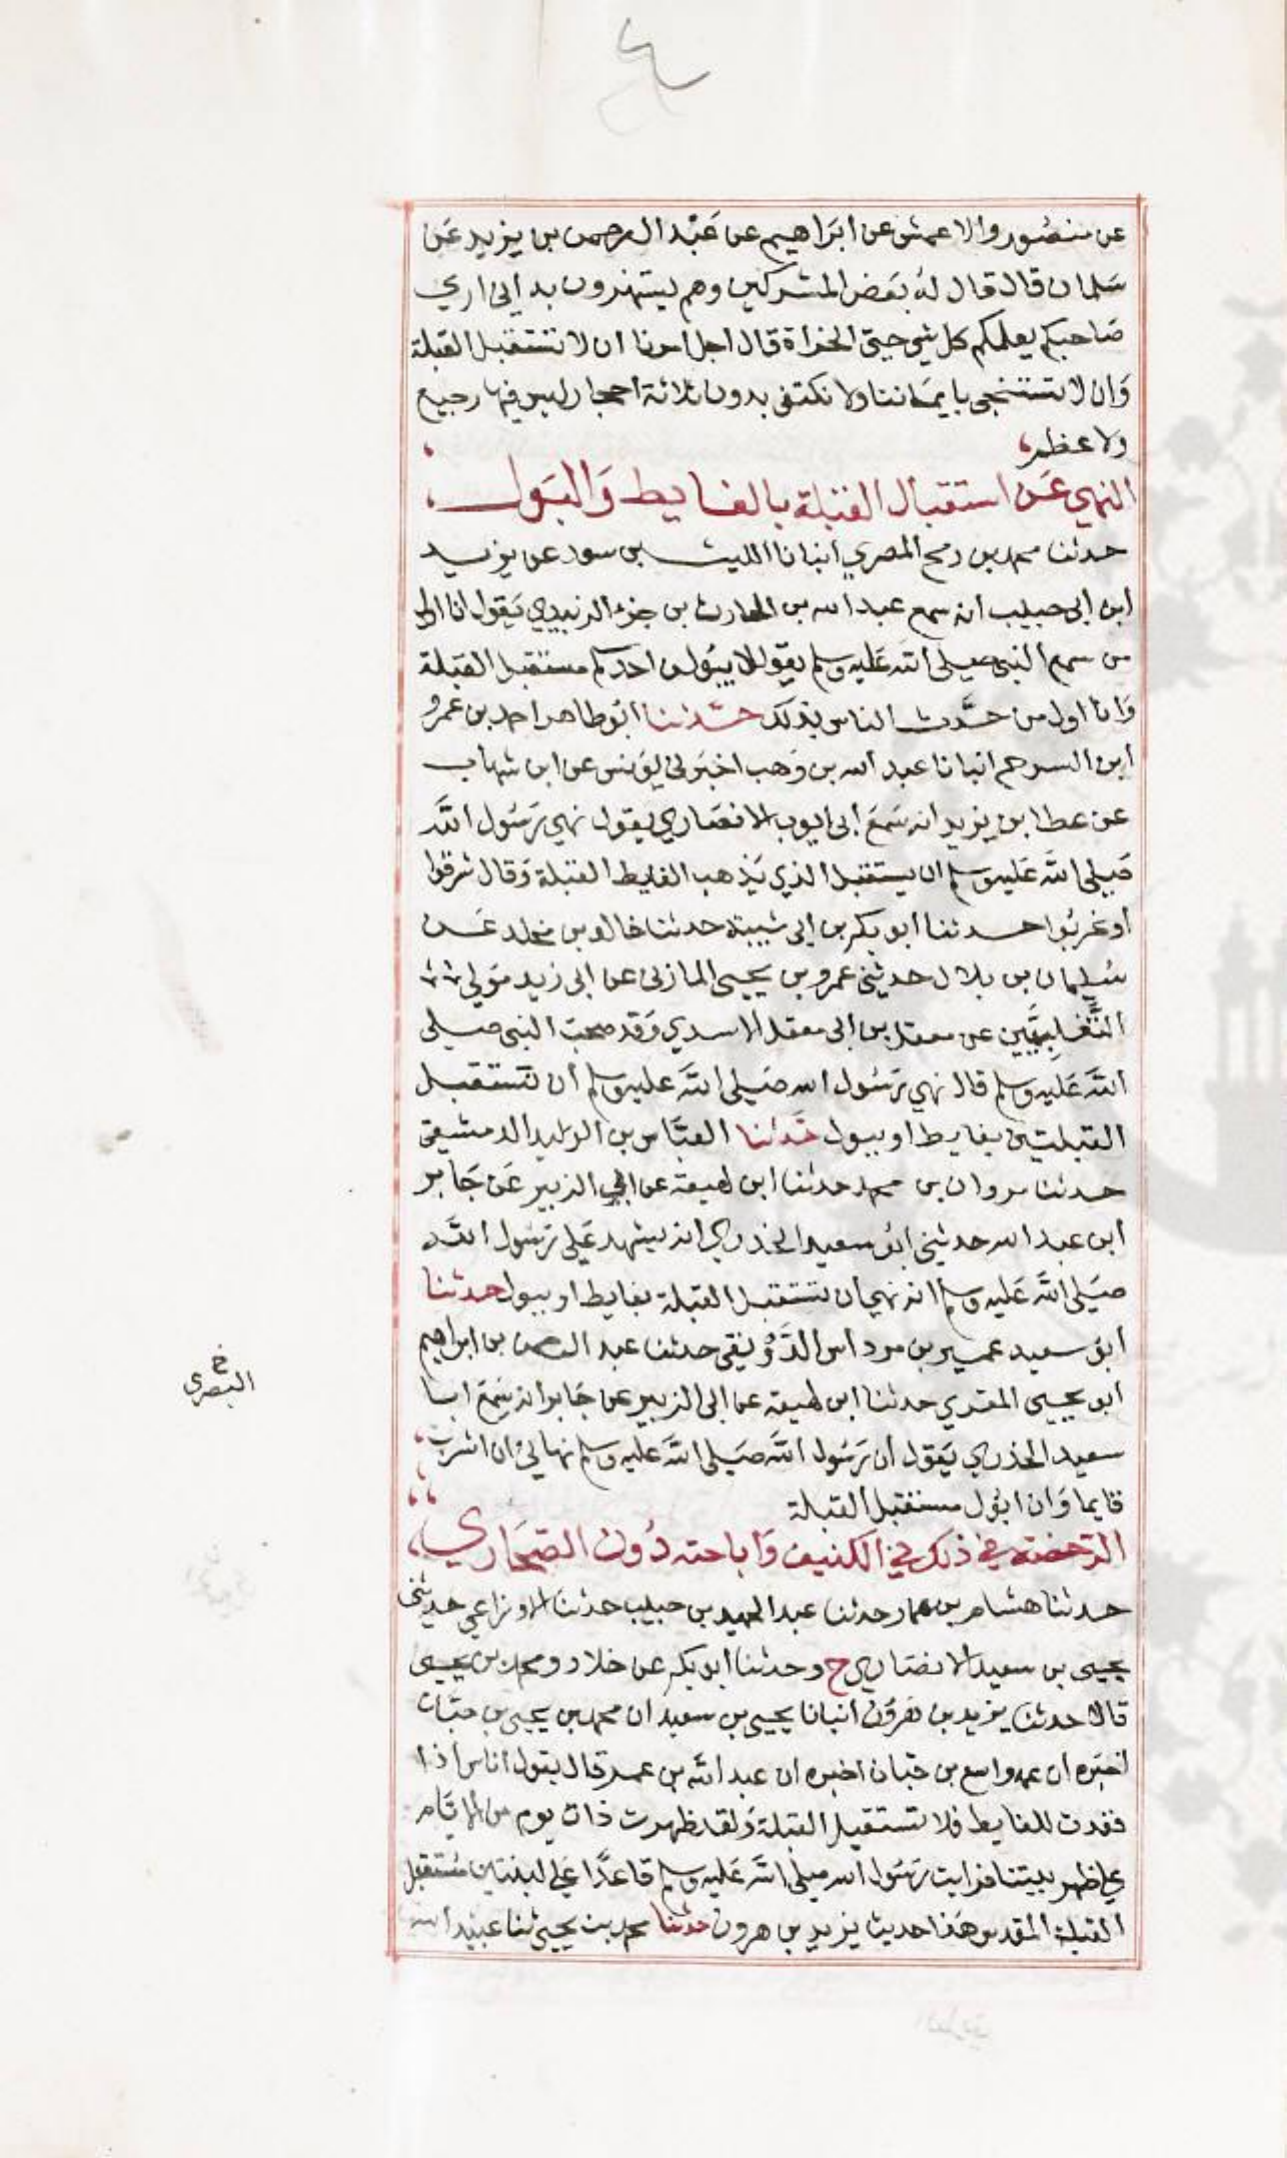 عن منصور والاعمش عن ابراهيم عن عبد الرحمن بن يزيد عن
سلمان قال قال له بعض المشركين وهم يستهزون به اني اري
صاحبكم يعلمكم كل شي حتي الخراة قال اجل امرنا ان لا نستقبل القبلة
وان لا نستنجي بايماننا ولا نكتفي بدون ثلاثة احجار ليس فيها رجيع
ولا عظم
النهي عن استقبال القبلة بالغايط والبول
حدثنا محمد بن رمح المصري انبانا الليث بن سعد عن يزيد
ابن ابي حبيب انه سمع عبد الله بن الحارث بن جزء الزبيدي يقول انا اول
من سمع النبي صلي الله عليه وسلم يقول لا يبولن احدكم مستقبل القبلة
وانا اول من حدث الناس بذلك حدثنا ابو طاهر احمد بن عمرو
ابن السرح انبانا عبد الله بن وهب اخبرني يونس عن ابن شهاب
عن عطا ابن يزيد انه سمع ابي ايوب الانصاري يقول نهي رسول الله
صلي الله عليه وسلم ان يستقبل الذي يذهب الغايط القبلة وقال شرقوا
او غربوا حدثنا ابو بكر بن ابي شيبة حدثنا خالد بن مخلد عن
سليمان بن بلال حدثني عمرو بن يحيى المازني عن ابي زيد مولي
الثعلبيين عن معقل بن ابي معقل الاسدي وقد صحب النبي صلي
الله عليه وسلم قال نهي رسول الله صلي الله عليه وسلم ان نستقبل
القبلتين بغايط او ببول حدثنا العباس بن الوليد الدمشقي
حدثنا مروان بن محمد حدثنا ابن لهيعة عن ابي الزبير عن جابر
ابن عبد الله حدثني ابو سعيد الخدري انه يشهد علي رسول الله
صلي الله عليه وسلم انه نهي ان نستقبل القبلة بغايط او ببول حدثنا
ابو سعيد عمير بن مرداس الدونقي حدثنا عبد الرحمن بن ابراهيم
ابو يحيى المقري حدثنا ابن لهيعة عن ابي الزبير عن جابر انه سمع ابا
خ
البصري
سعيد الخدري يقول ان رسول الله صلي الله عليه وسلم نهاني ان اشرب
قايما وان ابول مستقبل القبلة
الرخصة في ذلك في الكنيف واباحته دون الصحاري
حدثنا هشام بن عمار حدثنا عبد الحميد بن حبيب حدثنا الاوزاعي حدثني
يحيى بن سعيد الانصاري ح وحدثنا ابو بكر عن خلاد ومحمد بن يحيى
قالا حدثنا يزيد بن هرون انبانا يحيى بن سعيد ان محمد بن يحيى بن حبان
اخبره ان عمه واسع بن حبان اخبره ان عبد الله بن عمر قال يقول اناس اذا
قعدت للغايط فلا تستقبل القبلة ولقد ظهرت ذات يوم من الايام
علي ظهر بيتنا فرايت رسول الله صلي الله عليه وسلم قاعدا علي لبنتين مستقبل
القبلة المقدس هذا حديث يزيد بن هرون حدثنا محمد بن يحيى ثنا عبيد الله